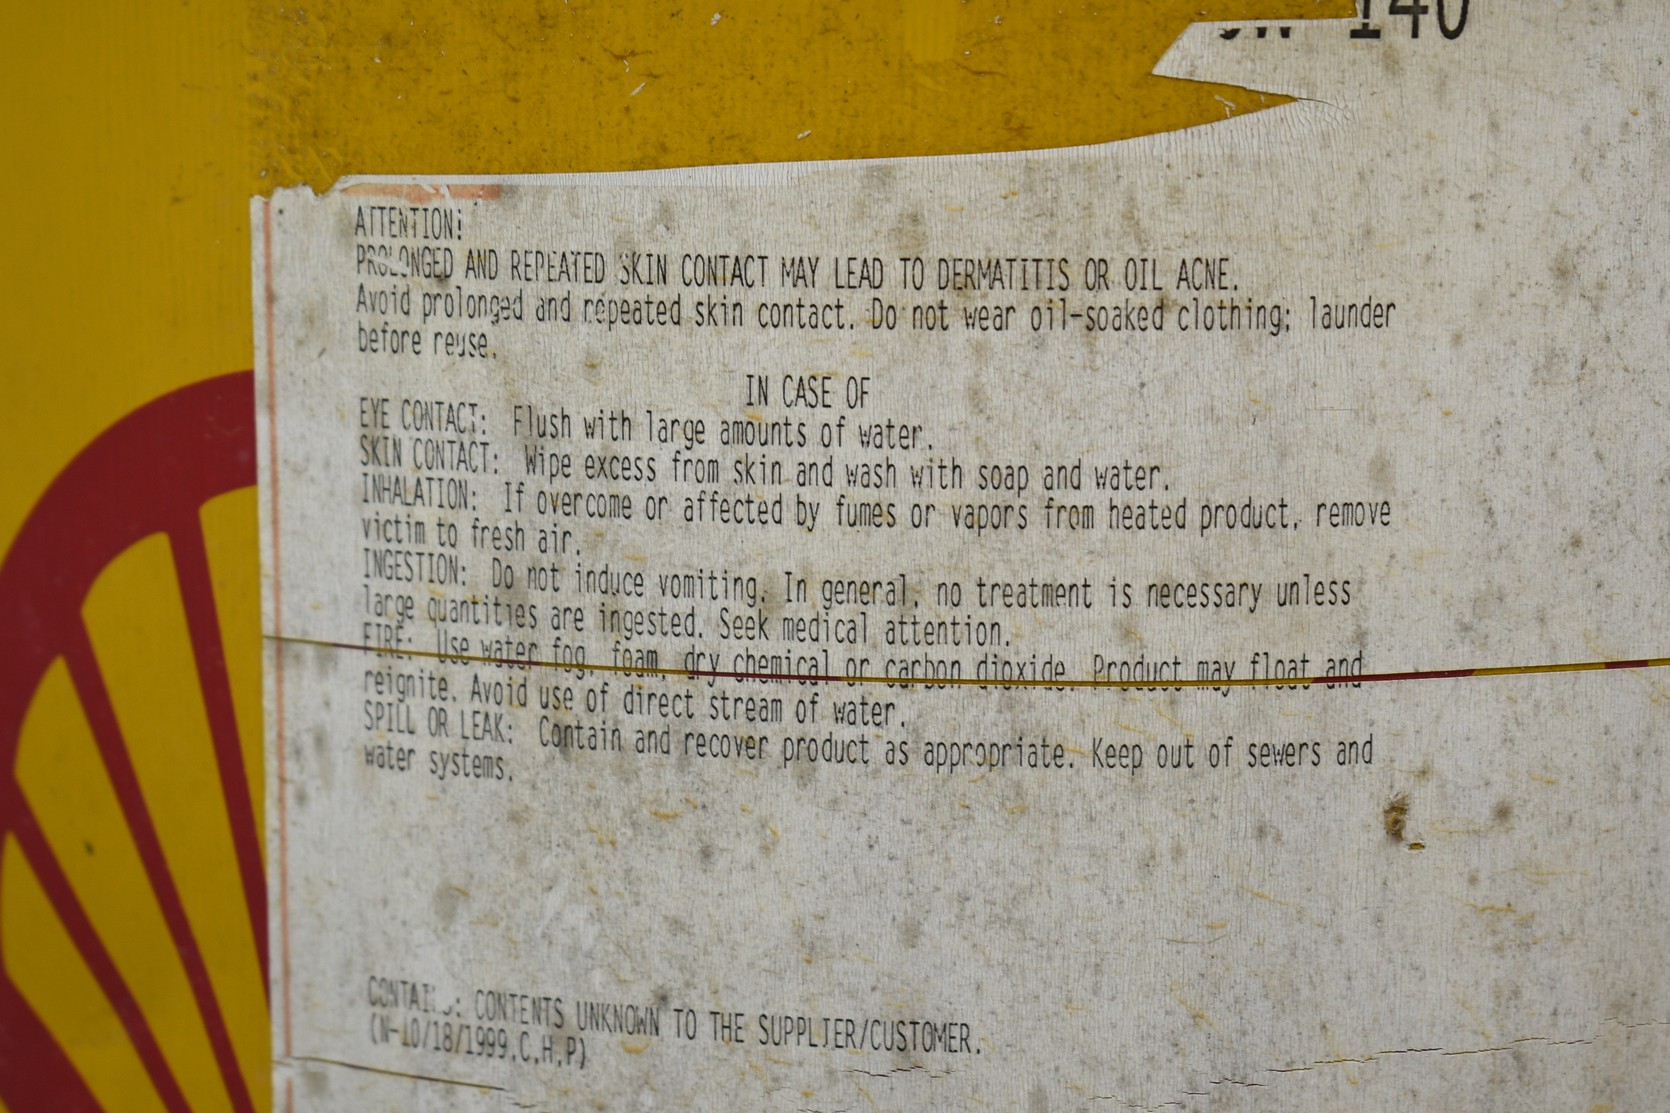 140
ATTENTION!
PROLONGED AND REPEATED SKIN CONTACT MAY LEAD TO DERMATITIS OR OIL ACNE.
Avoid prolonged and repeated skin contact. Do not wear oil-soaked clothing; launder
before reuse.
IN CASE OF
EYE CONTACT: Flush with large amounts of water.
SKIN CONTACT: Wipe excess from skin and wash with soap and water.
INHALATION: If overcome or affected by fumes or vapors from heated product, remove
victim to fresh air.
INGESTION: Do not induce vomiting. In general, no treatment is necessary unless
large quantities are ingested. Seek medical attention.
FIRE: Use water fog, foam, dry chemical or carbon dioxide. Product may float and
reignite. Avoid use of direct stream of water.
SPILL OR LEAK: Contain and recover product as appropriate. Keep out of sewers and
water systems.
CONTAINS: CONTENTS UNKNOWN TO THE SUPPLIER/CUSTOMER.
(N-10/18/1999,C,H,P)